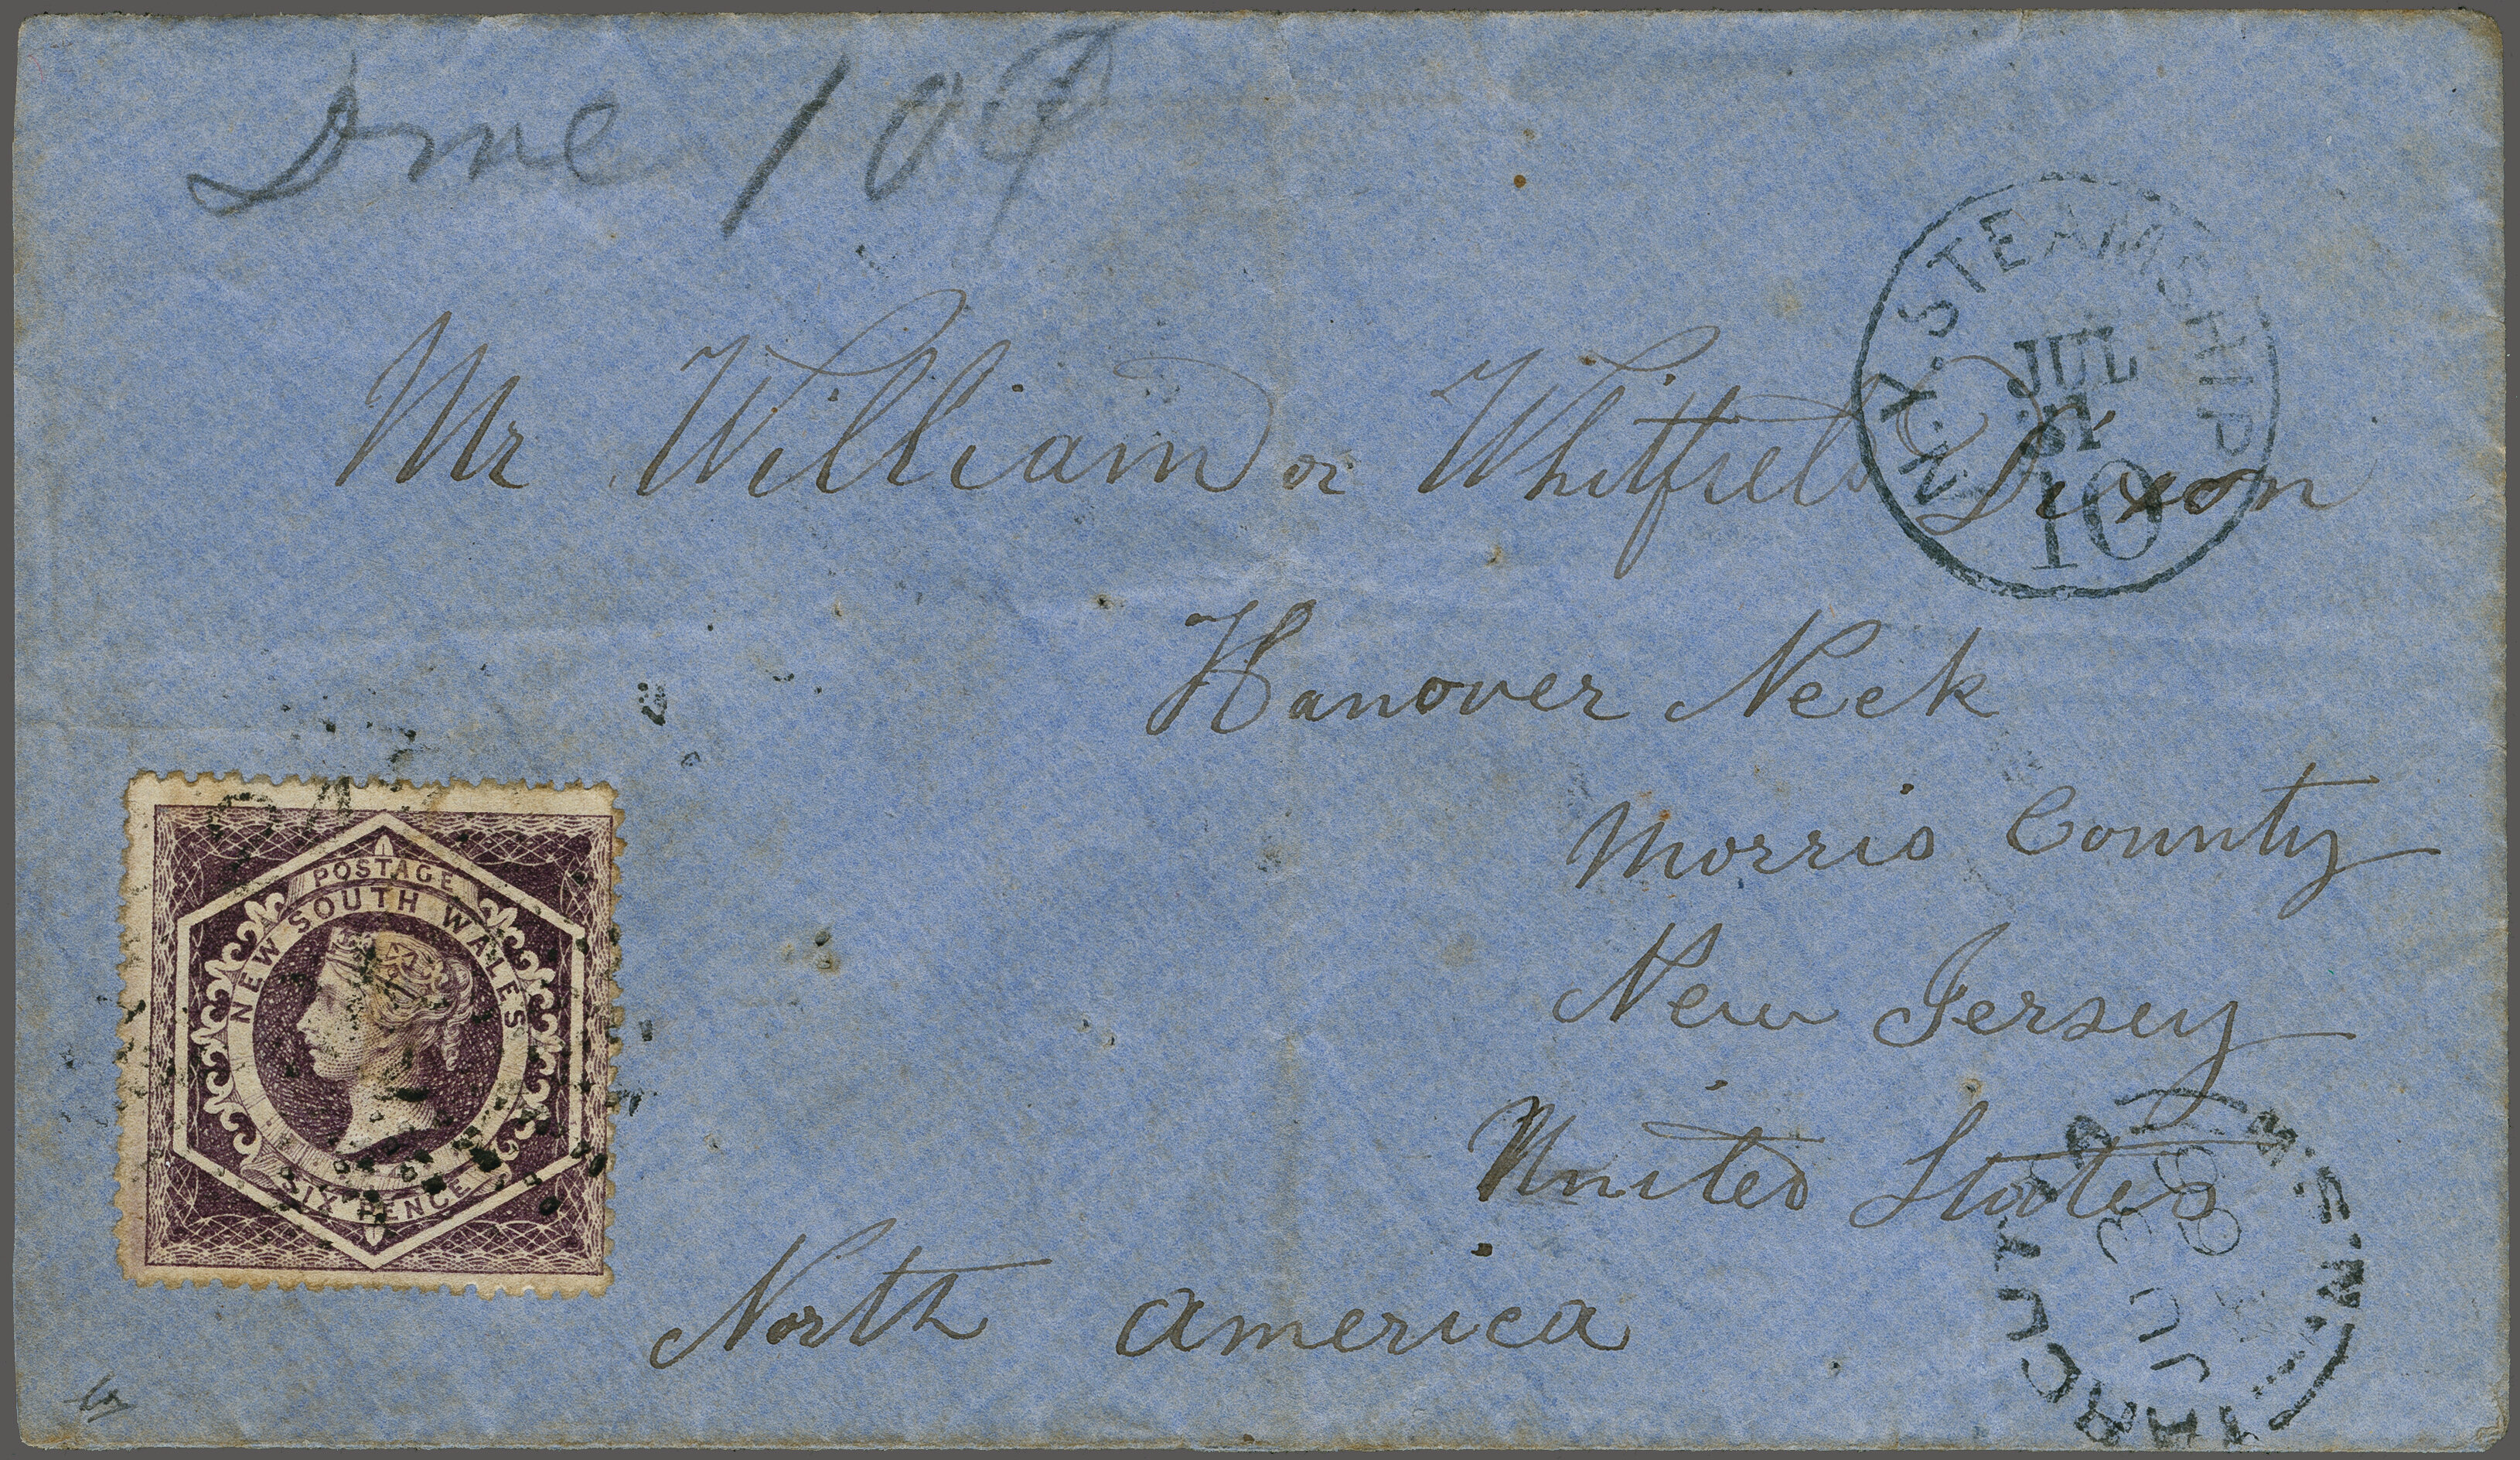 Due 10¢
N.Y. STEAMSHIP
JUL
10
Mr William or Whitfield Dixon
Hanover Neck
Morris County
New Jersey
United States
North America
POSTAGE
NEW SOUTH WALES
SIX PENCE
N.S.W.
JU